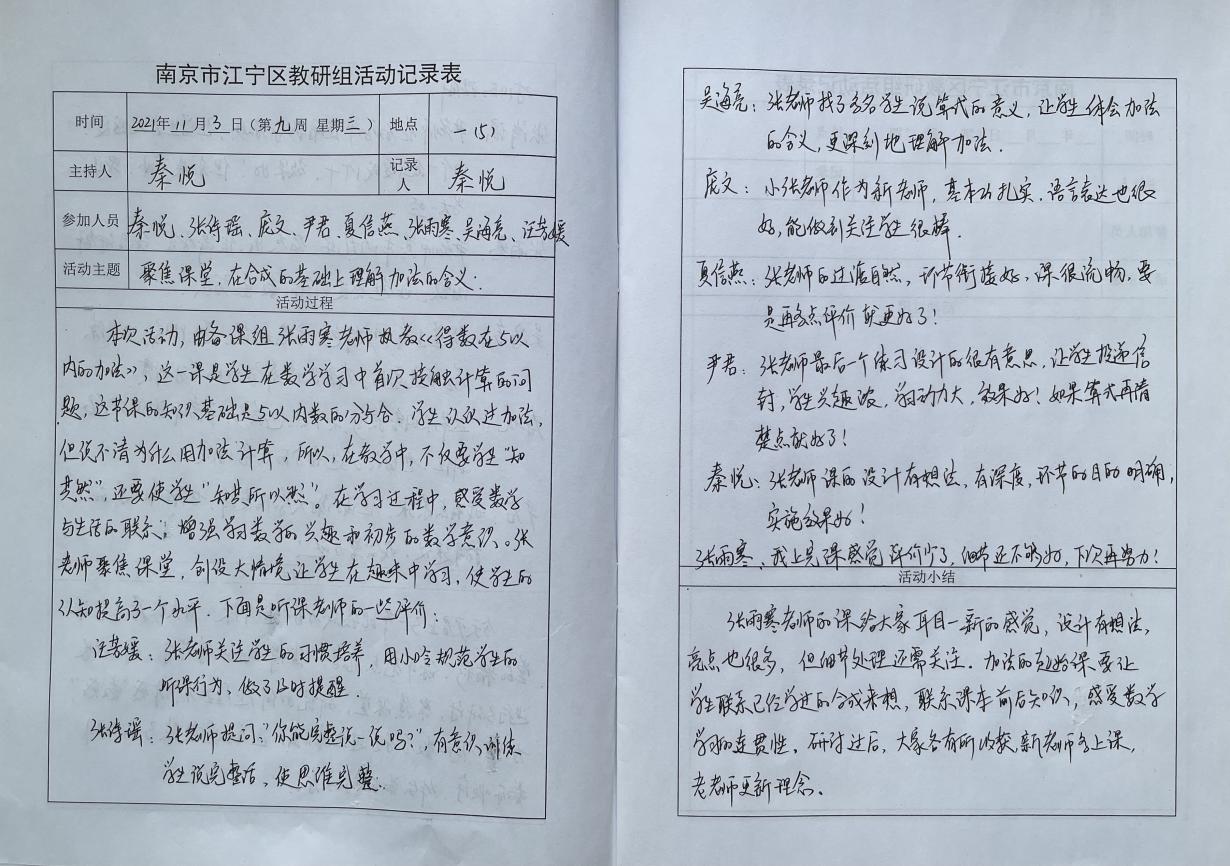 南京市江宁区教研组活动记录表
时间 2021年 11 月 3 日（第九周 星期三） 地点 一（5）
主持人 秦悦 记录人 秦悦
参加人员 秦悦、张倩瑶、庞文、尹君、夏信燕、张雨寒、吴海亮、汪芳媛
活动主题 聚焦课堂，在合成的基础上理解加法的含义.
活动过程
本次活动，由备课组张雨寒老师执教《得数在5以
内的加法》，这一课是学生在数学学习中首次接触计算的问
题，这节课的知识基础是5以内数的分与合.学生认识过加法，
但说不清为什么用加法计算，所以，在教学中，不仅要学生“知
其然”，还要使学生“知其所以然”。在学习过程中，感受数学
与生活的联系；增强学习数学的兴趣和初步的数学意识。张
老师聚焦课堂，创设大情境让学生在趣味中学习，使学生的
认知提高了一个水平.下面是听课老师的一些评价：
汪芳媛：张老师关注学生的习惯培养，用小口令规范学生的
听课行为，做了及时提醒.
张倩瑶：张老师提问：“你能完整说一说吗？”，有意识训练
学生说完整话，使思维完整.
吴海亮：张老师找了多名学生说算式的意义，让学生体会加法
的含义，更深刻地理解加法.
庞文：小张老师作为新老师，基本功扎实，语言表达也很
好，能做到关注学生很棒.
夏信燕：张老师的过渡自然，环节衔接好，课很流畅，要
是再多点评价就更好了！
尹君：张老师最后一个练习设计的很有意思，让学生投递信
封，学生兴趣浓，学习动力大，效果好！如果算式再清
楚点就好了！
秦悦：张老师课的设计有想法，有深度，环节的目的明确，
实施效果好！
张雨寒：我上完课感觉评价少了，细节还不够好，下次再努力！
活动小结
张雨寒老师的课给大家耳目一新的感觉，设计有想法，
亮点也很多，但细节处理还需关注.加法的起始课要让
学生联系已经学过的合成来想，联系课本前后知识，感受数学
学习的连贯性。研讨过后，大家各有所收获，新老师多上课，
老老师更新理念。